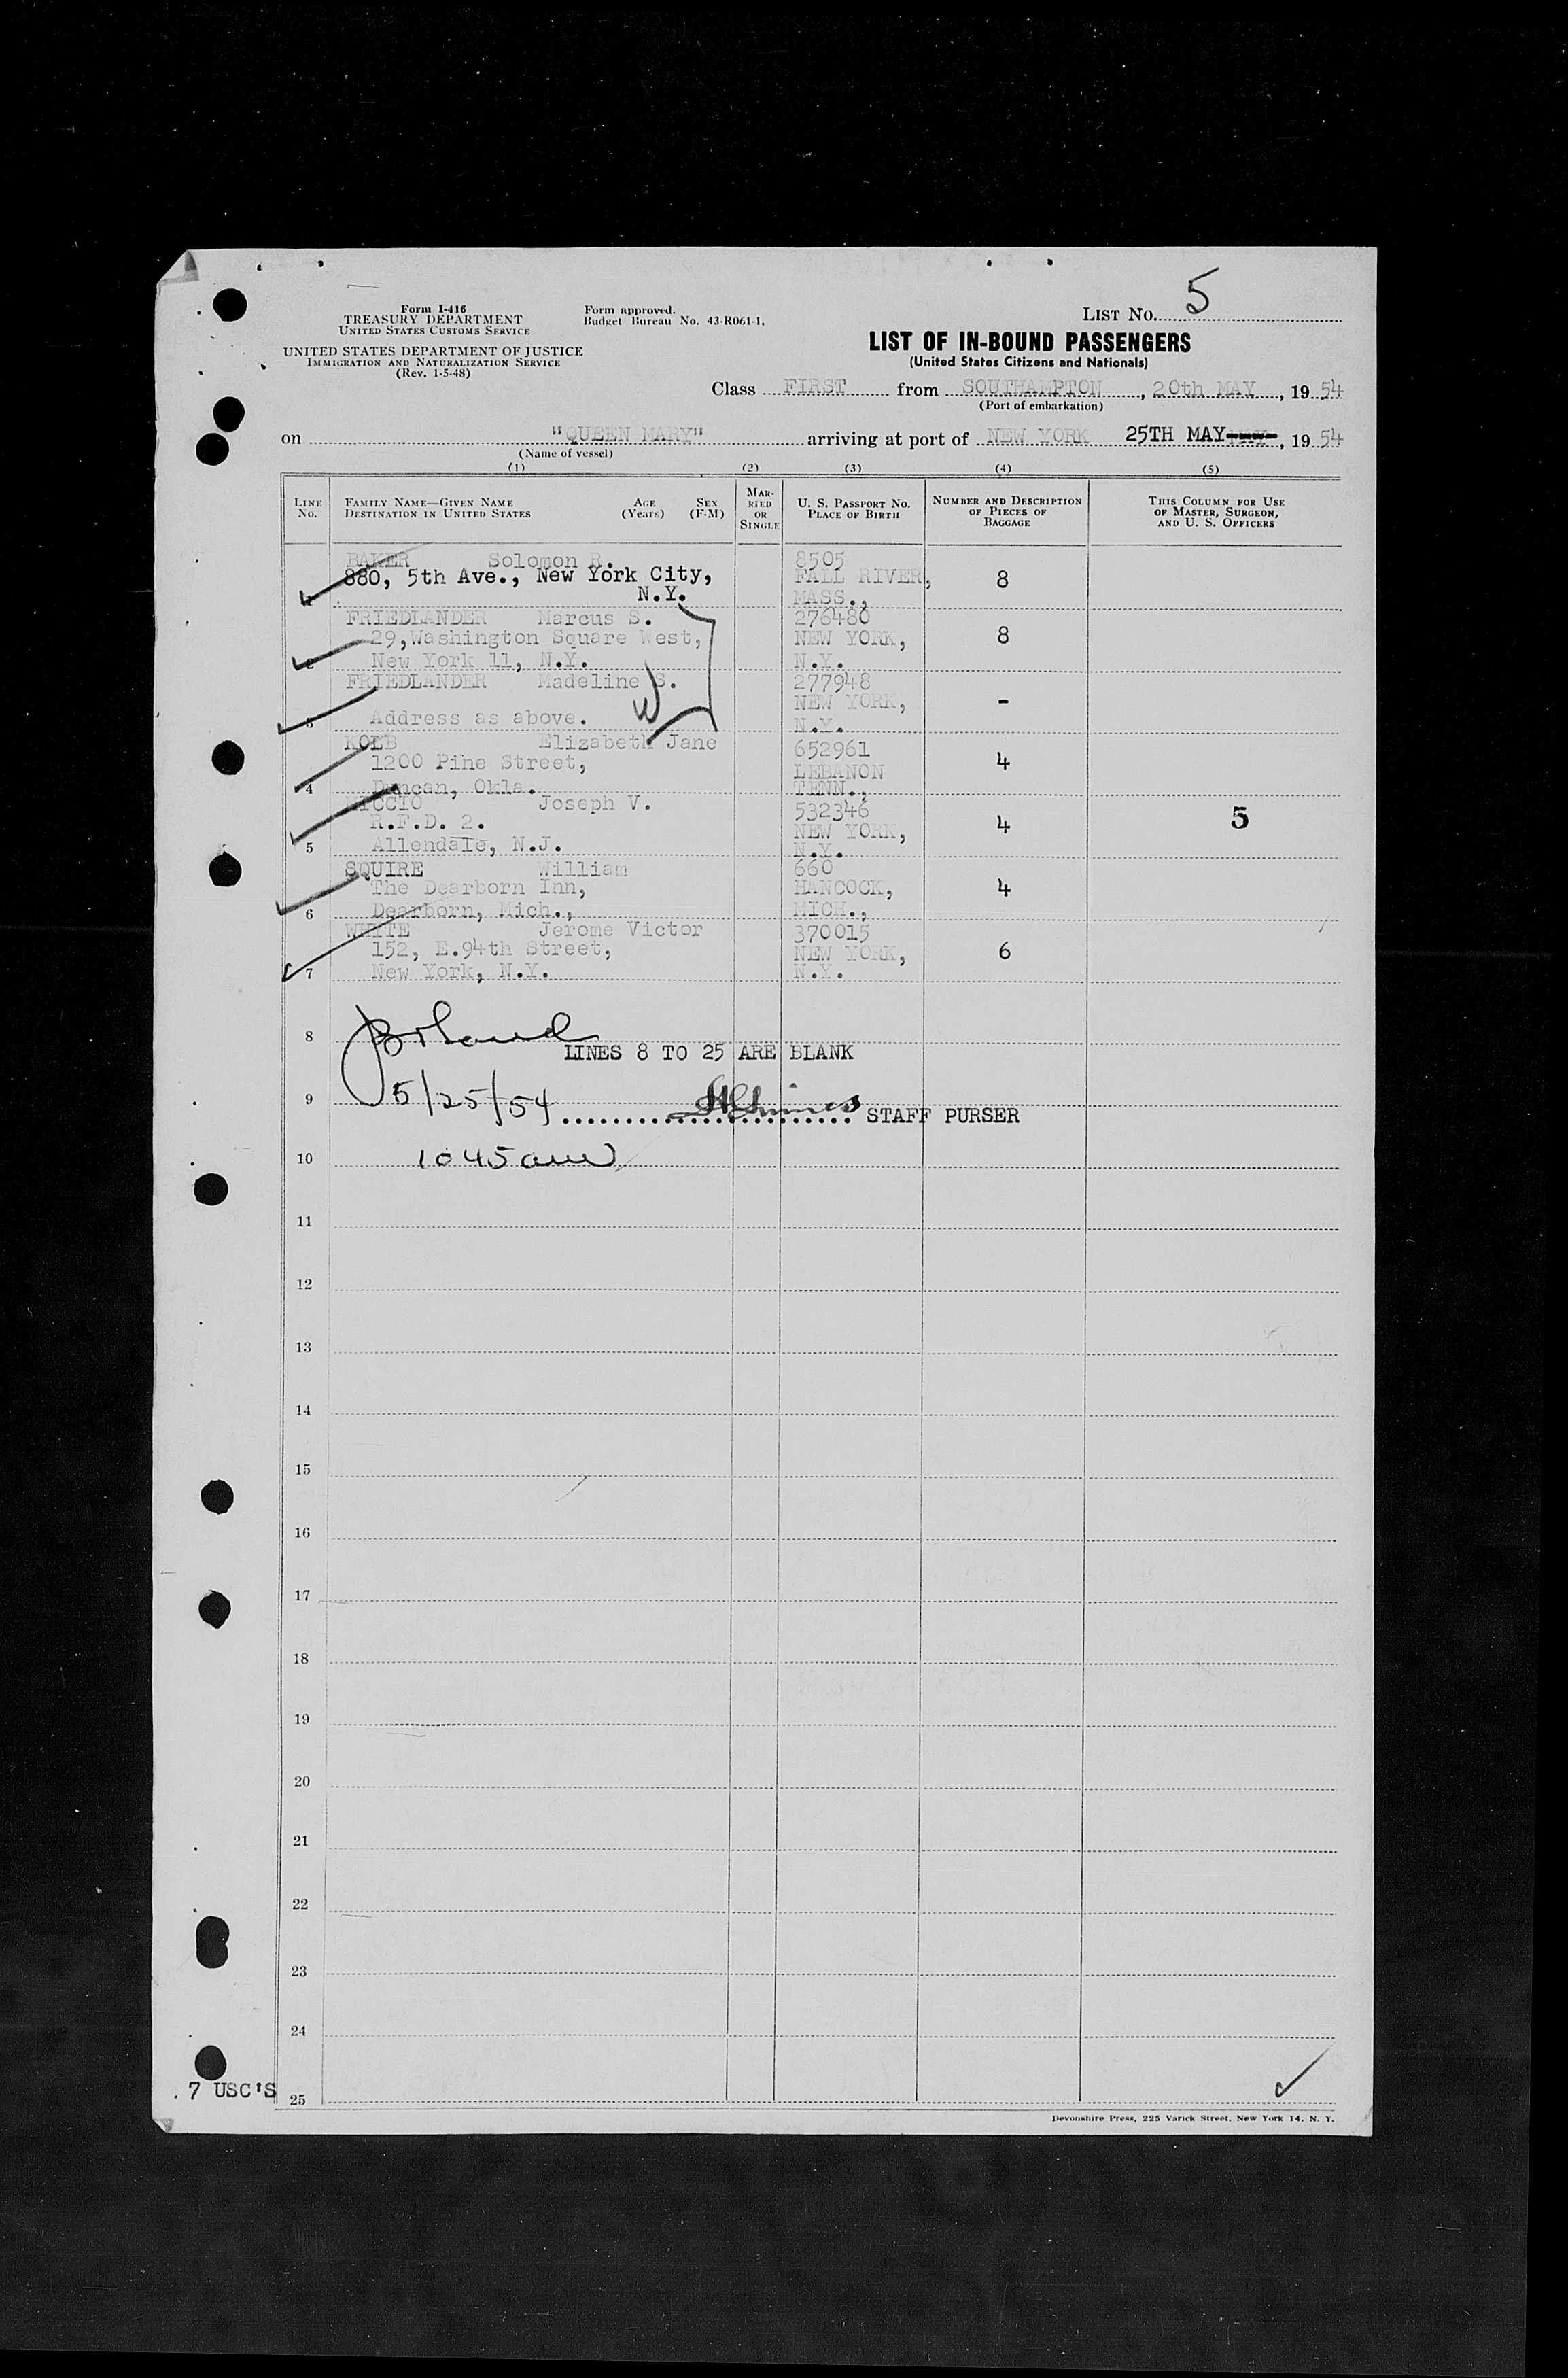 LIST No. 5
Form I-416
TREASURY DEPARTMENT
UNITED STATES CUSTOMS SERVICE
Form approved.
Budget Bureau No. 43-R061-1.
UNITED STATES DEPARTMENT OF JUSTICE
IMMIGRATION AND NATURALIZATION SERVICE
(Rev. 1-5-48)
LIST OF IN-BOUND PASSENGERS
(United States Citizens and Nationals)
Class FIRST from SOUTHAMPTON, 20th MAY, 19 54
(Port of embarkation)
on "QUEEN MARY" arriving at port of NEW YORK 25TH MAY, 19 54
(Name of vessel)
(1) (2) (3) (4) (5)
LINE No. FAMILY NAME—GIVEN NAME DESTINATION IN UNITED STATES AGE (Years) SEX (F-M) MARRIED OR SINGLE U. S. PASSPORT No. PLACE OF BIRTH NUMBER AND DESCRIPTION OF PIECES OF BAGGAGE THIS COLUMN FOR USE OF MASTER, SURGEON, AND U. S. OFFICERS
BAKER Solomon R. 8505
880, 5th Ave., New York City, FALL RIVER, 8
N.Y. MASS.,
FRIEDLANDER Marcus S. 276480
29, Washington Square West, NEW YORK, 8
2 New York 11, N.Y. N.Y.
FRIEDLANDER Madeline S. 277948
NEW YORK, -
3 Address as above. N.Y.
KOLB Elizabeth Jane 652961
1200 Pine Street, LEBANON 4
4 Duncan, Okla. TENN.,
Joseph V. 532346
R.F.D. 2. NEW YORK, 4 5
5 Allendale, N.J. N.Y.
SQUIRE William 660
The Dearborn Inn, HANCOCK, 4
6 Dearborn, Mich., MICH.,
WHITE Jerome Victor 370015
152, E.94th Street, NEW YORK, 6
7 New York, N.Y. N.Y.
8
LINES 8 TO 25 ARE BLANK
9 5/25/54
STAFF PURSER
10 1045 am
11
12
13
14
15
16
17
18
19
20
21
22
23
24
7 USC'S 25
Devonshire Press, 225 Varick Street, New York 14, N. Y.